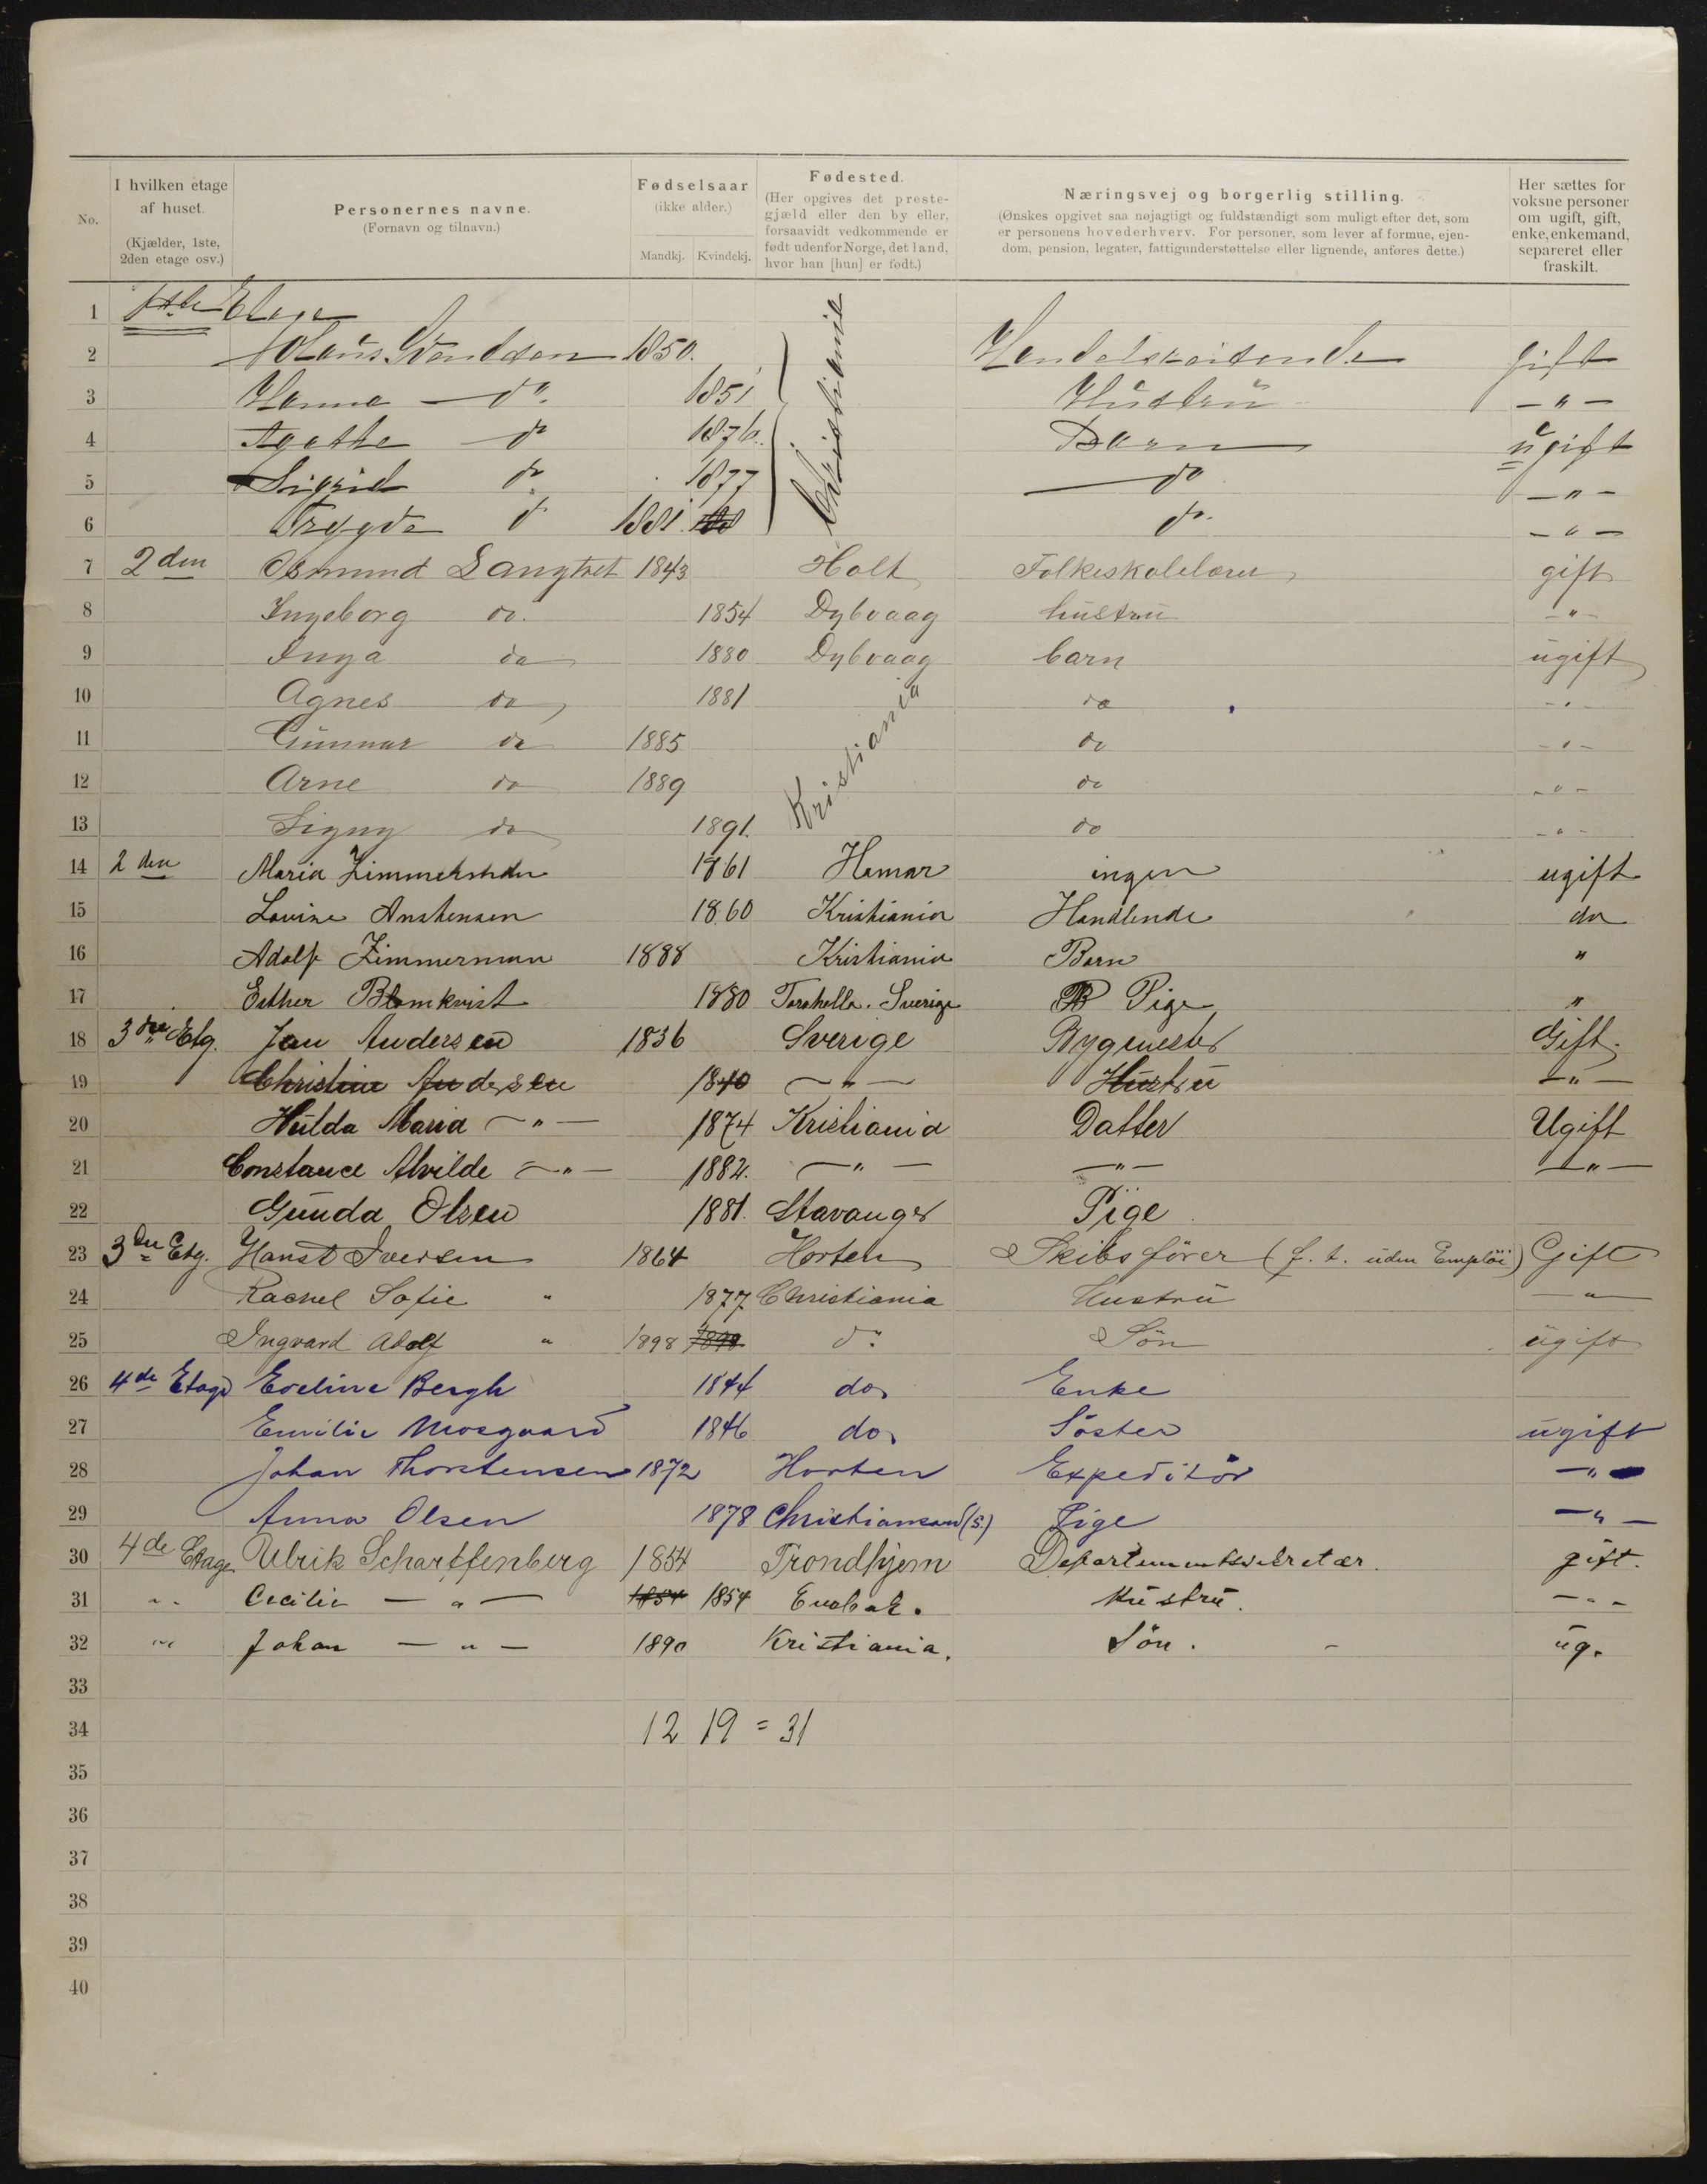 No.
I hvilken etage af huset. (Kjælder, 1ste, 2den etage osv.)
Personernes navne. (Fornavn og tilnavn.)
Fødselsaar (ikke alder.) Mandkj. Kvindekj.
Fødested. (Her opgives det prestegjæld eller den by eller, forsaavidt vedkommende er født udenfor Norge, det land, hvor han [hun] er født.)
Næringsvej og borgerlig stilling. (Ønskes opgivet saa nøjagtigt og fuldstændigt som muligt efter det, som er personens hovederhverv. For personer, som lever af formue, ejendom, pension, legater, fattigunderstøttelse eller lignende, anføres dette.)
Her sættes for voksne personer om ugift, gift, enke, enkemand, separeret eller fraskilt.
1 1ste Etage
2 1850. Christiania Handelsreisende gift
3 Hanna do. 1851 Hustru — " —
4 Agathe do 1876. Barn ugift
5 Sigrid do 1877 do — " —
6 Trygve do 1881 do. — " —
7 2den Osmund Langtvet 1843 Holt Folkeskolelærer gift
8 Ingeborg do. 1854 Dybvaag hustru — " —
9 Inga do 1880 Dybvaag barn ugift
10 Agnes do 1881 Kristiania do — " —
11 Gunnar do 1885 do — " —
12 Arne do 1889 do — " —
13 Signy do 1891. do — " —
14 2den Maria Zimmerman 1861 Hamar ingen ugift
15 Lovise Anstensen 1860 Kristiania Handlende do
16 Adolf Zimmerman 1888 Kristiania Barn "
17 Esther Blomkvist 1880 Sverige Pige "
18 3die Etg. Jan Andersen 1836 Sverige Bygmester Gift.
19 Christine Andersen 1840 — " — Hustru — " —
20 Hulda Maria — " — 1874 Kristiania Datter Ugift
21 Constance Alvilde — " — 1882. — " — — " — — " —
22 Gunda Olsen 1881. Stavanger Pige
23 3die Etg. Hans T Iversen 1864 Horten Skibsfører (f. t. uden Emploi) Gift
24 Rachel Sofie " 1877 Christiania Hustru — " —
25 Ingvard Adolf " 1898 do. Søn ugift
26 4de Etage Eveline Bergh 1844 do Enke
27 Emilie Mosgaard 1846 do Søster ugift
28 Johan Thorstensen 1872 Horten Expeditør — " —
29 Anna Olsen 1878 Christiansand (S.) Pige — " —
30 4de Etage Ulrik Scharffenberg 1854 Trondhjem Departementssekretær. gift.
31 " Cecilie — " — 1854 1854 Hustru. — " —
32 " Johan — " — 1890 Kristiania. Søn. ug.
33
34 12 19 = 31
35
36
37
38
39
40